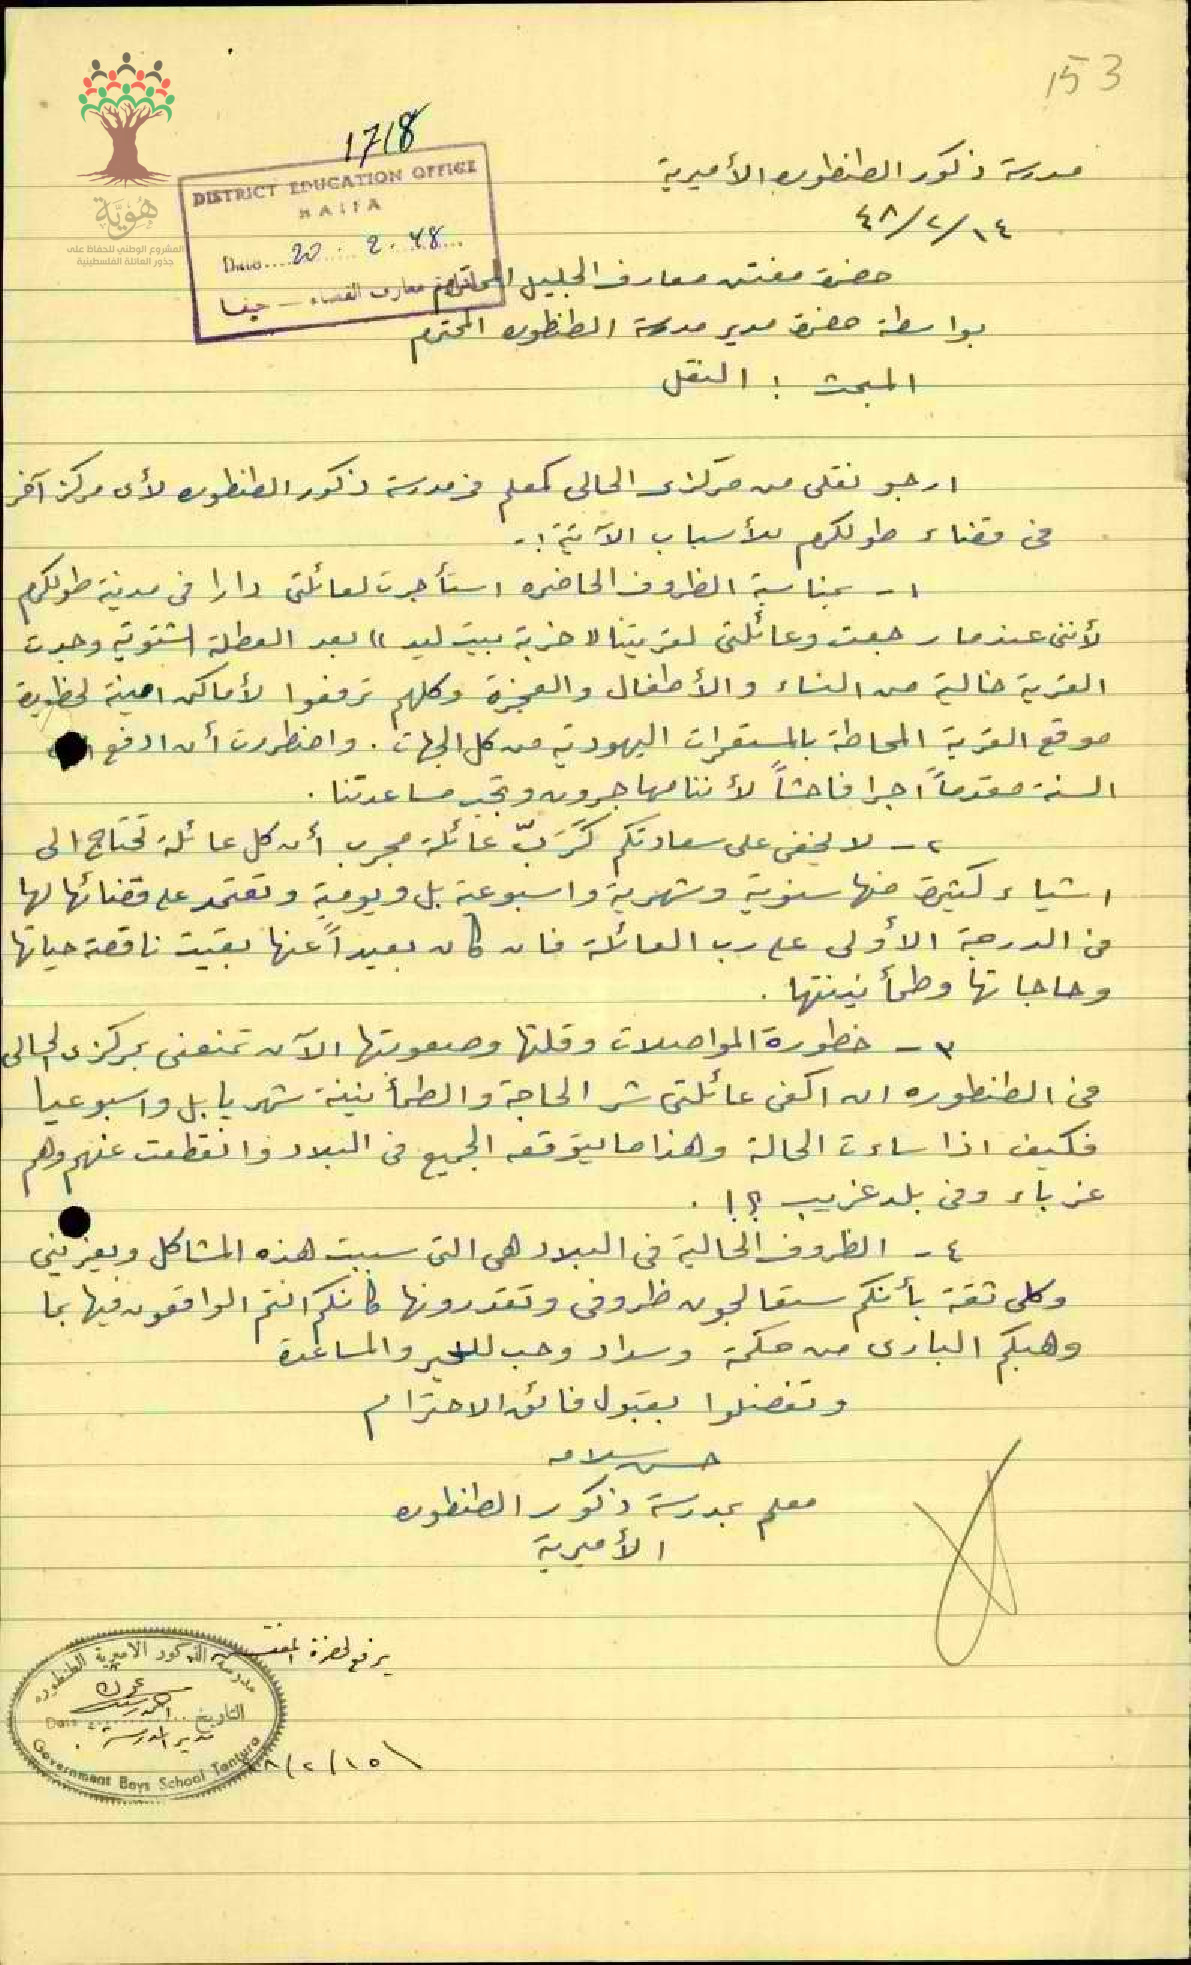 153
هُوِيَّة
المشروع الوطني للحفاظ على
جذور العائلة الفلسطينية
1718
DISTRICT EDUCATION OFFICE
HAIFA
Date 20. 2. 48
معارف القضاء — حيفا
مدرسة ذكور الطنطوره الأميرية
١٤/٢/٤٨
حضرة مفتش معارف الجليل المحترم
بواسطة حضرة مدير مدرسة الطنطوره المحترم
المبحث : النقل
ارجو نقلي من مركزى الحالي كمعلم في مدرسة ذكور الطنطوره لأى مركز آخر
في قضاء طولكرم للأسباب الآتية :-
١- بمناسبة الظروف الحاضره استأجرت لعائلتي دارا في مدينة طولكرم
لأنني عندما رجعت وعائلتي لقريتنا "خربة بيت ليد" بعد العطلة الشتوية وجدت
القرية خالية من النساء والأطفال والعجزة وكلهم ترفعوا لأماكن امينة لخطورة
موقع القرية المحاطة بالمستعمرات اليهودية من كل الجهات . واضطررت أن ادفع
السنة مقدماً اجرا فاحشاً لأننا مهاجرون وتجب مساعدتنا .
٢- لا يخفى على سعادتكم كَرَبّ عائلة مجرب أن كل عائلة تحتاج الى
اشياء كثيرة منها سنوية وشهرية واسبوعية بل ويومية وتعتمد على قضائها لها
في الدرجة الأولى على رب العائلة فان كان بعيداً عنها بقيت ناقصة حياتها
وحاجاتها وطمأنينتها .
٣- خطورة المواصلات وقلتها وصعوبتها الآن تمنعني بمركزى الحالي
في الطنطوره ان اكفي عائلتي شر الحاجة والطمأنينة شهريا بل واسبوعيا
فكيف اذا ساءت الحالة وهذا ما يتوقعه الجميع في البلاد وانقطعت عنهم وهم
غرباء وفي بلد غريب ؟! .
٤- الظروف الحالية في البلاد هي التي سببت هذه المشاكل ويعزيني
وكلي ثقة بأنكم ستعالجون ظروفي وتقدرونها كأنكم انتم الواقعون فيها بما
وهبكم البارى من حكمة وسداد وحب للخير والمساعدة
وتفضلوا بقبول فائق الاحترام
حسن سلامه
معلم بمدرسة ذكور الطنطوره
الأميرية
يرفع لحضرة المفتش
مدرسة الذكور الاميرية الطنطوره
التاريخ Date
مدير المدرسة
Government Boys School Tantura
١٥/٢/٤٨